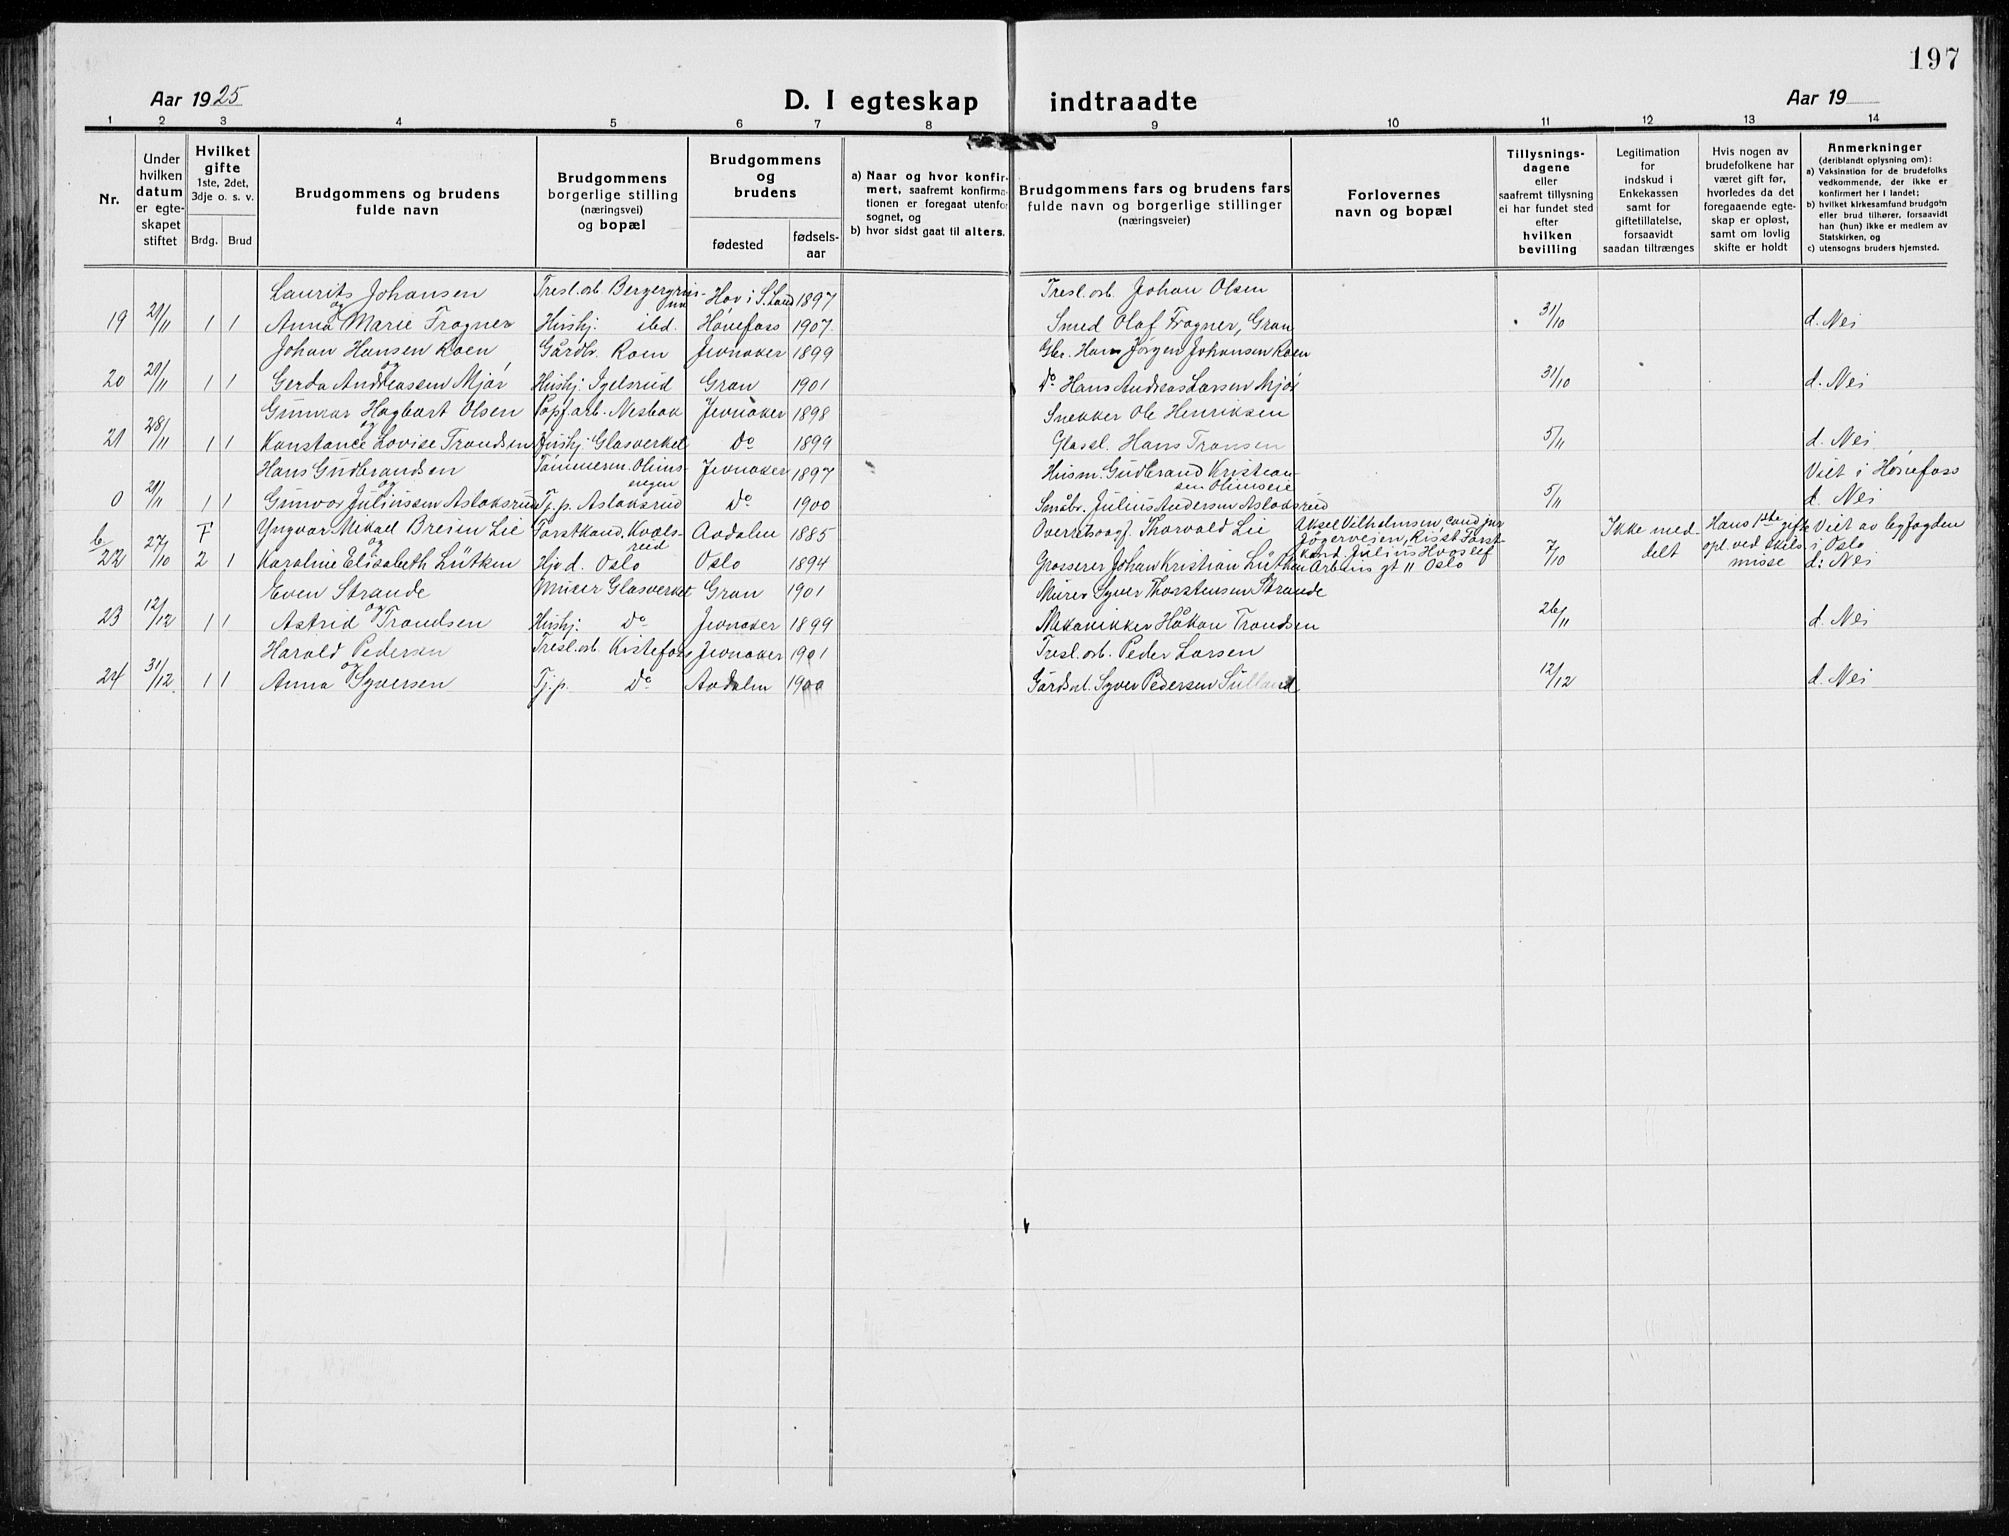 197
Aar 1925
D. I egteskap indtraadte
Aar 19
1 2 3 4 5 6 7 8 9 10 11 12 13 14
Nr.
Under hvilken datum er egte-skapet stiftet
Hvilket gifte
1ste, 2det, 3dje o. s. v.
Brdg. Brud
Brudgommens og brudens fulde navn
Brudgommens borgerlige stilling (næringsvei) og bopæl
Brudgommens og brudens
fødested
fødsels-aar
a) Naar og hvor konfir-mert, saafremt konfirma-tionen er foregaat utenfor sognet, og
b) hvor sidst gaat til alters.
Brudgommens fars og brudens fars fulde navn og borgerlige stillinger (næringsveier)
Forlovernes navn og bopæl
Tillysnings-dagene eller saafremt tillysning ei har fundet sted efter hvilken bevilling
Legitimation for indskud i Enkekassen samt for giftetillatelse, forsaavidt saadan tiltrænges
Hvis nogen av brudefolkene har været gift før, hvorledes da det foregaaende egte-skap er opløst, samt om lovlig skifte er holdt
Anmerkninger (deriblandt oplysning om):
a) Vaksination for de brudefolks vedkommende, der ikke er konfirmert her i landet;
b) hvilket kirkesamfund brudgom eller brud tilhører, forsaavidt han (hun) ikke er medlem av Statskirken, og
c) utensogns bruders hjemsted.
Laurits Johansen Tresl.arb. Hov i S. Land 1897 Tresl.arb. Johan Olsen
19 21/11 1 1 og Anna Marie Fragner Hushj. ibd. Hønefoss 1907. Smed Olaf Fragner, Gran 31/10 d. Nei
Johan Hansen Roen Gårdbr. Roen Jevnaker 1899 Gbr. Hans Jørgen Johansen Roen
20 21/11 1 1 og Gerda Andreassen Mjør Hushj. Igelsrud Gran 1901 Do Hans Andreas Larsen Mjør 31/10 d. Nei
Gunnar Hagbart Olsen Papf.arb. Nesbak Jevnaker 1898 Snekker Ole Henriksen
21 28/11 1 1 og Konstance Lovise Trondsen Hushj. Glasverket Do 1899 Glasel. Hans Transen 5/11 d. Nei
Hans Gudbrandsen Tømmerm. Olims-eiegen Jevnaker 1897 Husm. Gudbrand Kristian-sen Olimseie Viet i Hønefoss
0 21/11 1 1 og Gunvor Juliussen Aslaksrud Tj.p. Aslaksrud Do 1900 Småbr. Julius Andersen Aslaksrud 5/11 d. Nei
b F Yngvar Mikael Breien Lie Forstkand. Kvæls-rud Aadalen 1885 Overrettssagf. Thorvald Lie Aksel Vilhelmsen, cand jur Jögerveien, Rist Forst-kand. Julius Hvoslef Ikke med-delt Hans 1ste gifte opl. ved skils-misse Viet av byfogden i Oslo
22 27/10 2 1 og Karoline Elisabeth Lütken Hjv. d. Oslo Oslo 1894 Grosserer Johan Kristian Lütken Arbins gt 11 Oslo 7/10 d: Nei
Even Strande Murer Glasverket Gran 1901 Murer Syver Thorstensen Strande
23 12/12 1 1 og Astrid Trondsen Hushj: Do Jevnaker 1899 Mekanikker Håkon Trondsen 26/11 d. Nei
Harald Pedersen Tresl.arb. Kistefoss Jevnaker 1901 Tresl.arb. Peder Larsen
24 31/12 1 1 og Anna Syversen Tj.p. Do Aadalen 1900 Syver Pedersen Sulland 12/12 d. Nei